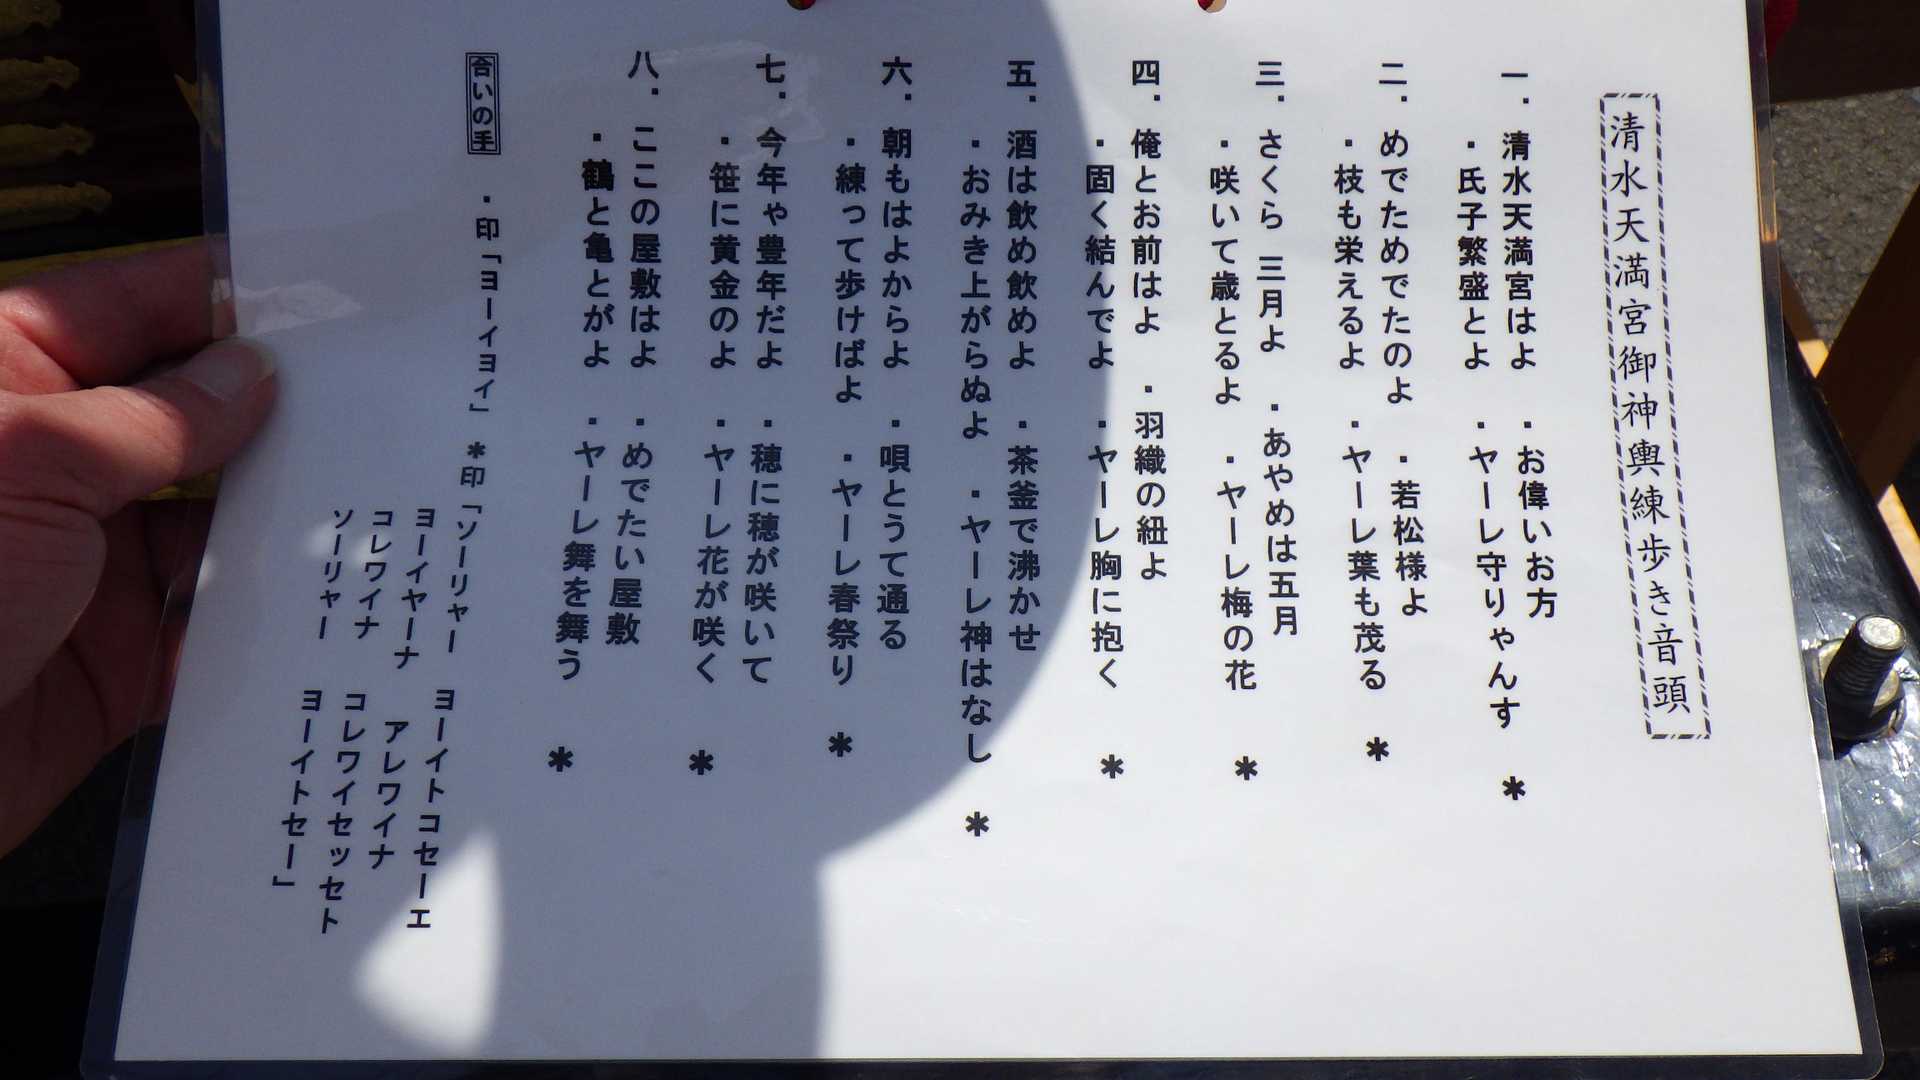 清水天満宮御神輿練歩き音頭
一．清水天満宮はよ ・お偉いお方
・氏子繁盛とよ ・ヤーレ守りゃんす ＊
二．めでためでたのよ ・若松様よ
・枝も栄えるよ ・ヤーレ葉も茂る ＊
三．さくら 三月よ ・あやめは五月
・咲いて歳とるよ ・ヤーレ梅の花 ＊
四．俺とお前はよ ・羽織の紐よ
・固く結んでよ ・ヤーレ胸に抱く ＊
五．酒は飲め飲めよ ・茶釜で沸かせ
・おみき上がらぬよ ・ヤーレ神はなし ＊
六．朝もはよからよ ・唄とうて通る
・練って歩けばよ ・ヤーレ春祭り ＊
七．今年ゃ豊年だよ ・穂に穂が咲いて
・笹に黄金のよ ・ヤーレ花が咲く ＊
八．ここの屋敷はよ ・めでたい屋敷
・鶴と亀とがよ ・ヤーレ舞を舞う ＊
合いの手 ・印「ヨーイヨイ」 ＊印「ソーリャー ヨーイトコセーエ
ヨーイヤーナ アレワイナ
コレワイナ コレワイセッセト
ソーリャー ヨーイトセー」